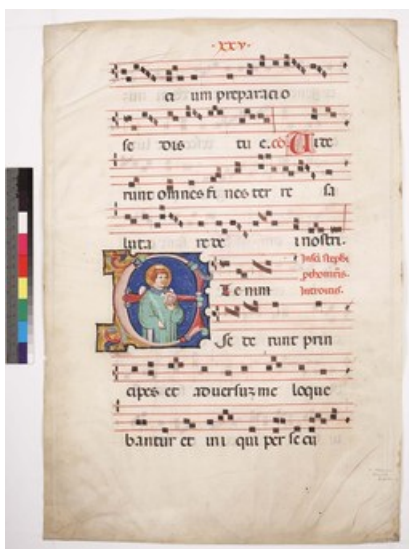 ·xxv·
ci um preparacio
se dis tu e. cō Uide
runt omnes fi nes ter re sa
luta re de i nostri.
In sci̅ stephi̅
pthom̅ris.
Introitus.
Et e nim
se de runt prin
cipes et aduersuz me loque
bantur et ini qui per se cu